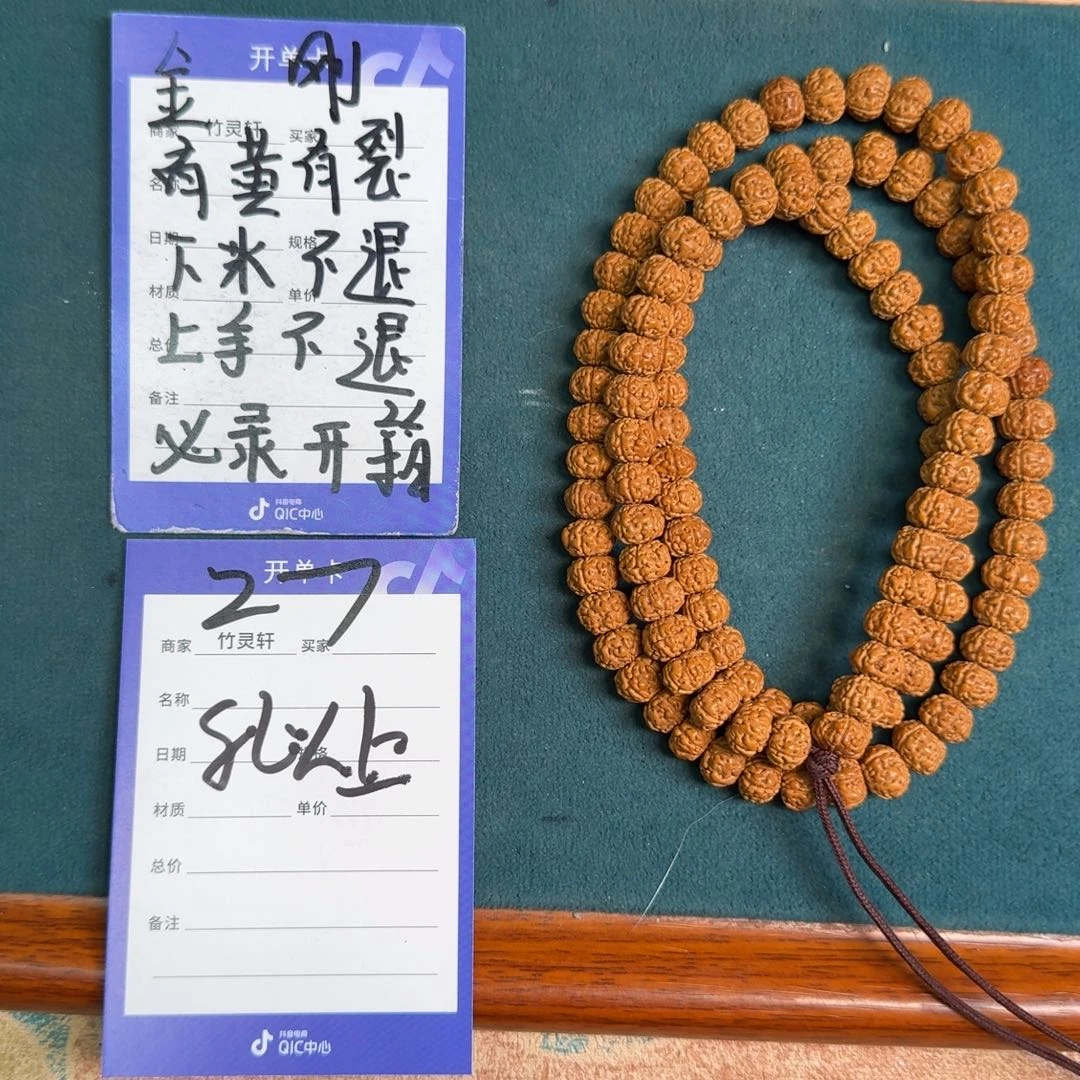 开单卡
金刚
商家 竹灵轩 买家
有黄有裂
名称
日期 规格
下水不退
材质 单价
上手不退
总价
备注
必录开箱
抖音电商
QIC中心
开单卡
27
商家 竹灵轩 买家
名称
日期 规格
孔以上
材质 单价
总价
备注
抖音电商
QIC中心